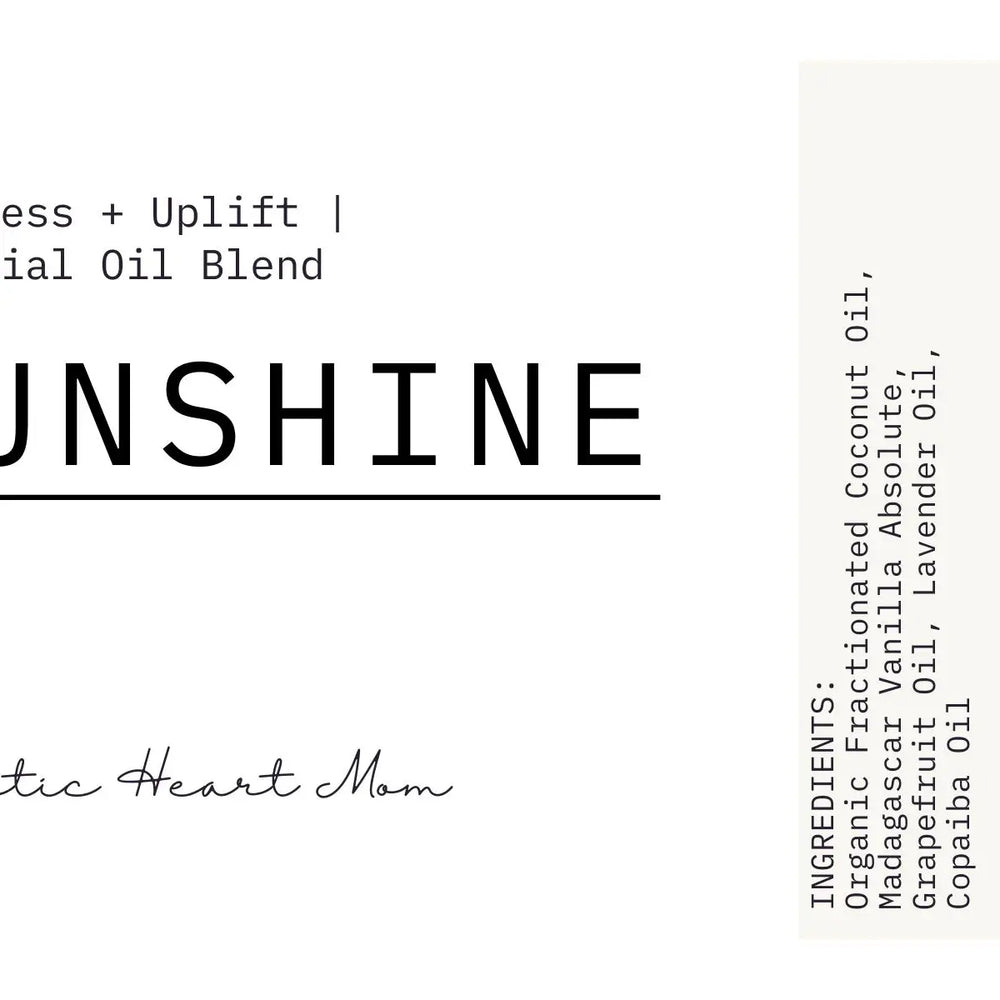 ess + Uplift |
ial Oil Blend
UNSHINE
tic Heart Mom
INGREDIENTS:
Organic Fractionated Coconut Oil,
Madagascar Vanilla Absolute,
Grapefruit Oil, Lavender Oil,
Copaiba Oil